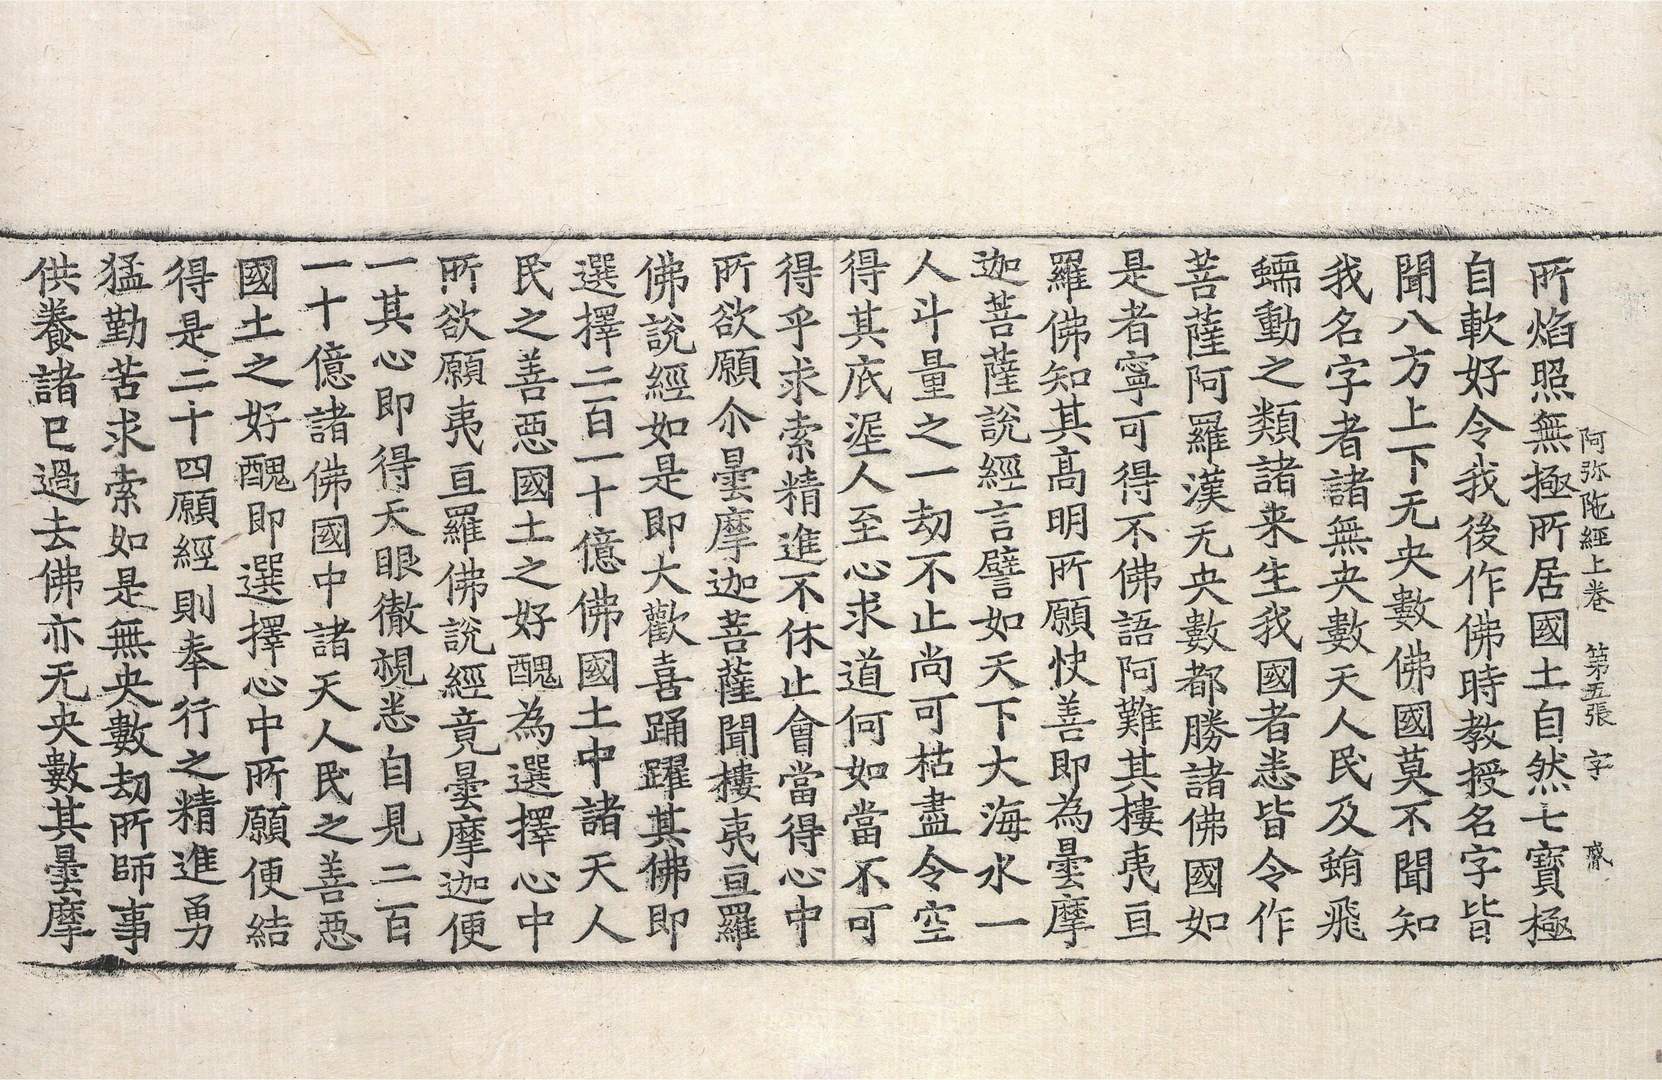 阿弥陁經上卷　第五張　字
所焰照無極所居國土自然七寶極
自軟好令我後作佛時教授名字皆
聞八方上下无央數佛國莫不聞知
我名字者諸無央數天人民及蜎飛
蠕動之類諸来生我國者悉皆令作
菩薩阿羅漢无央數都勝諸佛國如
是者寧可得不佛語阿難其樓夷亘
羅佛知其高明所願快善即為曇摩
迦菩薩說經言譬如天下大海水一
人斗量之一劫不止尚可枯盡令空
得其底埿人至心求道何如當不可
得乎求索精進不休止會當得心中
所欲願尒曇摩迦菩薩聞樓夷亘羅
佛說經如是即大歡喜踊躍其佛即
選擇二百一十億佛國土中諸天人
民之善惡國土之好醜為選擇心中
所欲願夷亘羅佛說經竟曇摩迦便
一其心即得天眼徹視悉自見二百
一十億諸佛國中諸天人民之善惡
國土之好醜即選擇心中所願便結
得是二十四願經則奉行之精進勇
猛勤苦求索如是無央數劫所師事
供養諸巳過去佛亦无央數其曇摩